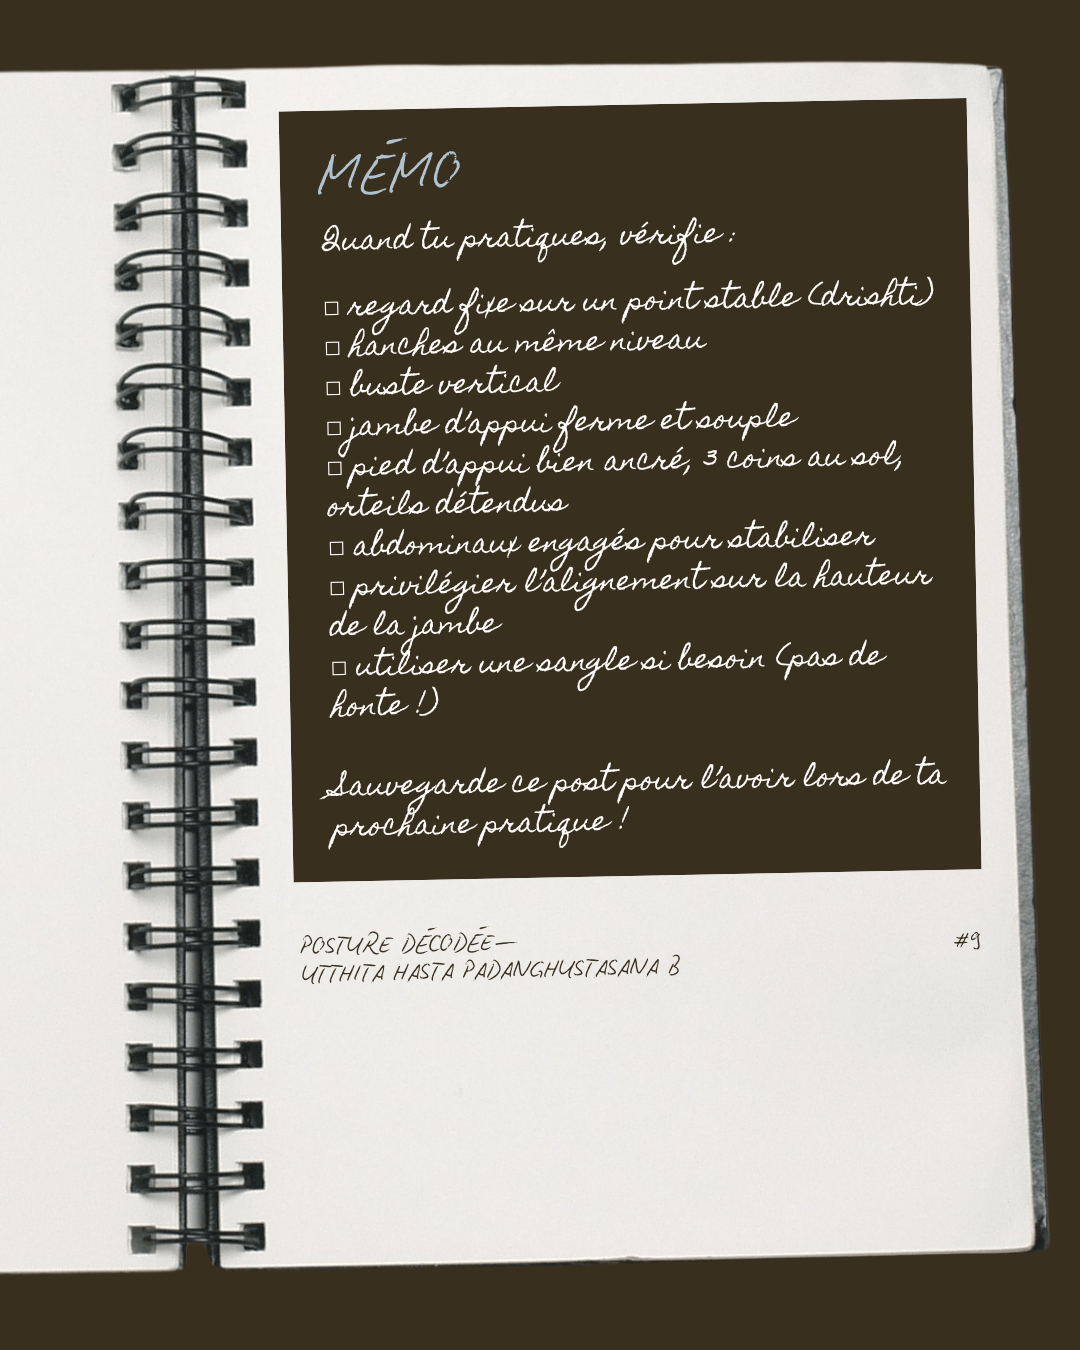 MÉMO
Quand tu pratiques, vérifie :
□ regard fixe sur un point stable (drishti)
□ hanches au même niveau
□ buste vertical
□ jambe d'appui ferme et souple
□ pied d'appui bien ancré, 3 coins au sol,
orteils détendus
□ abdominaux engagés pour stabiliser
□ privilégier l'alignement sur la hauteur
de la jambe
□ utiliser une sangle si besoin (pas de
honte !)
Sauvegarde ce post pour l'avoir lors de ta
prochaine pratique !
POSTURE DÉCODÉE—
UTTHITA HASTA PADANGHUSTASANA B
#9